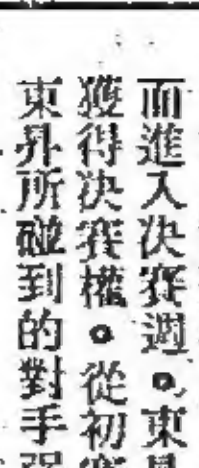 而進入決賽週。東
獲得決賽權。從初
東昇所碰到的對手